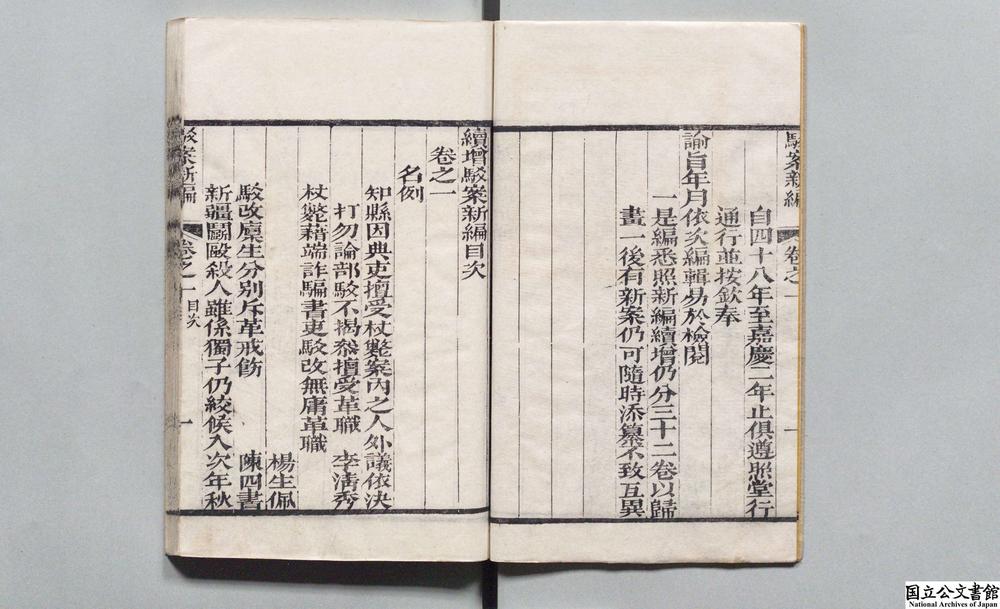 駁案新編
卷之一
一
自四十八年至嘉慶二年止俱遵照堂行
通行並按欽奉
諭旨年月依次編輯易於檢閱
一是編悉照新編續增仍分三十二卷以歸
畫一後有新案仍可隨時添纂不致互異
續增駁案新編目次
卷之一
名例
知縣因典吏擅受杖斃案內之人外議依決
打勿論部駁不揭叅擅受革職
李淸秀
杖斃藉端詐騙書吏駁改無庸革職
楊生佩
駁改廩生分別斥革戒飭
陳四書
新疆鬬毆殺人雖係獨子仍絞候入次年秋
駁案新編
卷之一
目次
一
国立公文書館
National Archives of Japan